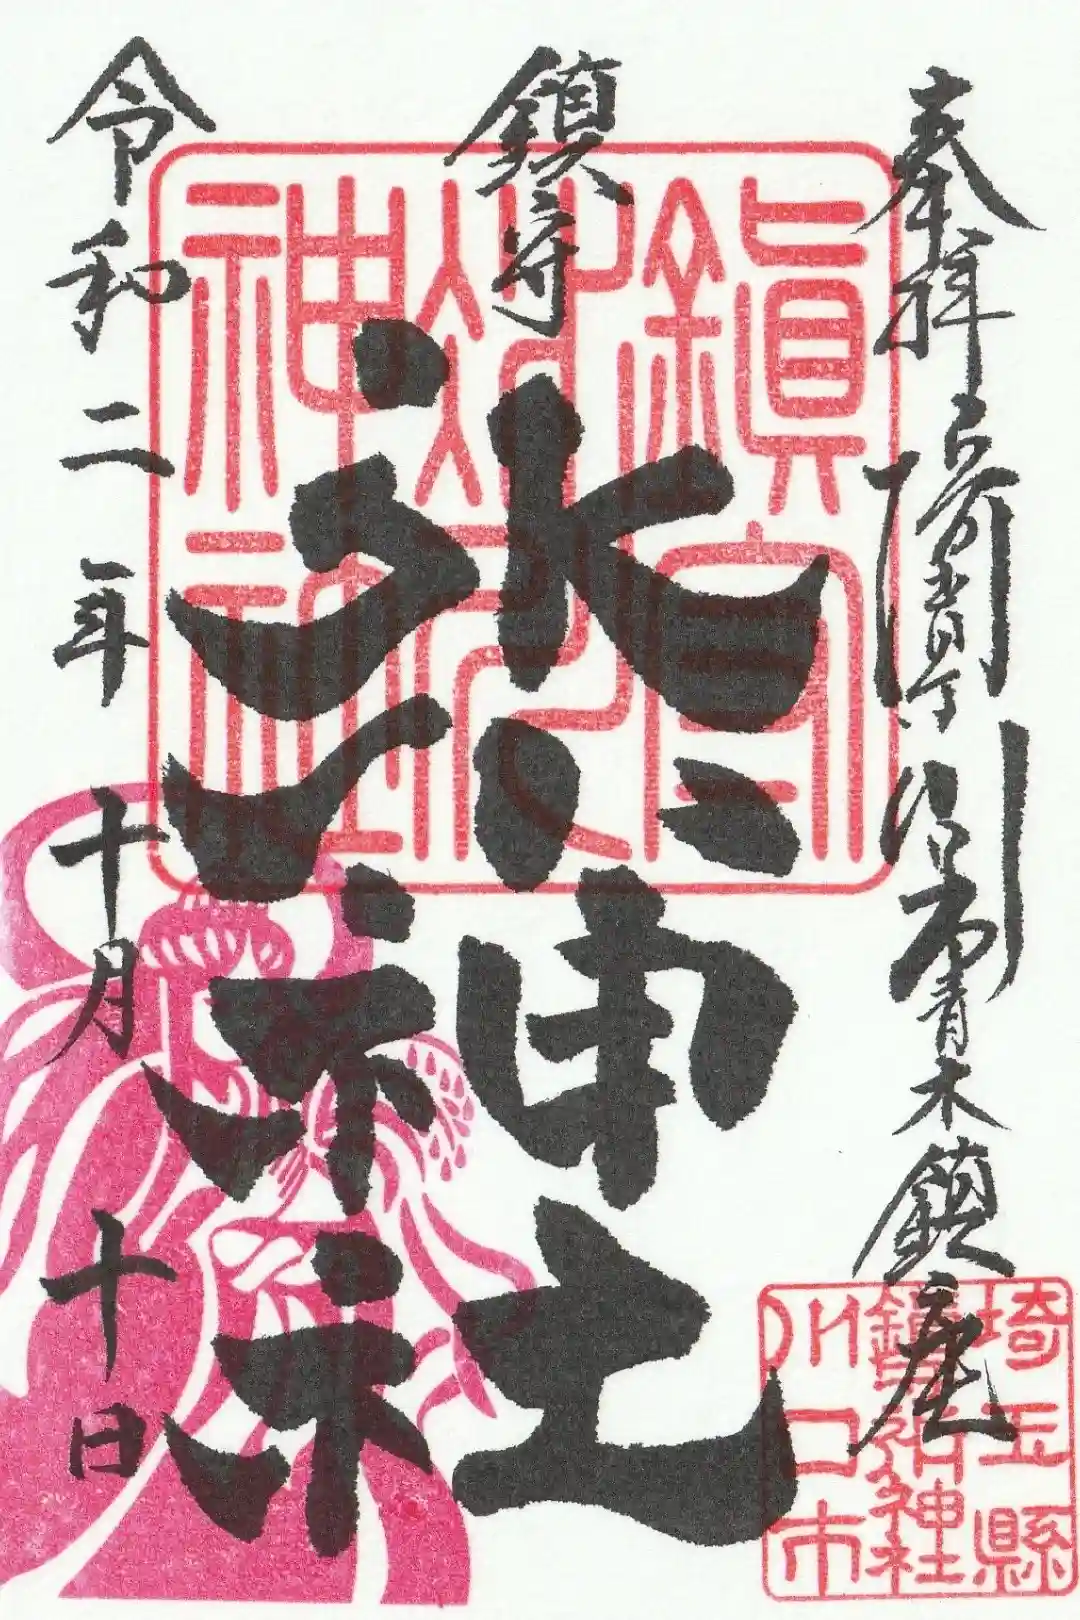 奉拝
青木鎮座
鎮守
氷川神社
令和二年十月十日
鎮守
氷川
神社
埼玉縣
鎮守氷川神社
川口市